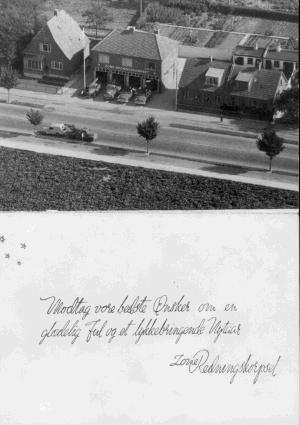 Modtag vore bedste Ønsker om en
glædelig Jul og et lykkebringende Nytaar
Zone Redningskorpset